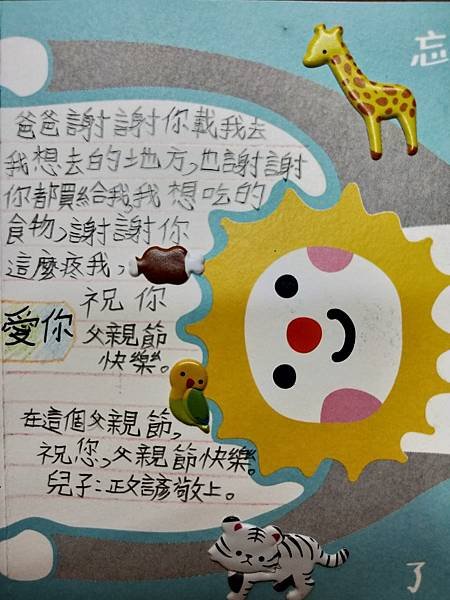 忘
爸爸謝謝你載我去
我想去的地方,也謝謝
你都買給我我想吃的
食物,謝謝你
這麼疼我,
祝你
愛你
父親節
快樂。
在這個父親節,
祝您,父親節快樂。
兒子:政諺敬上。
了